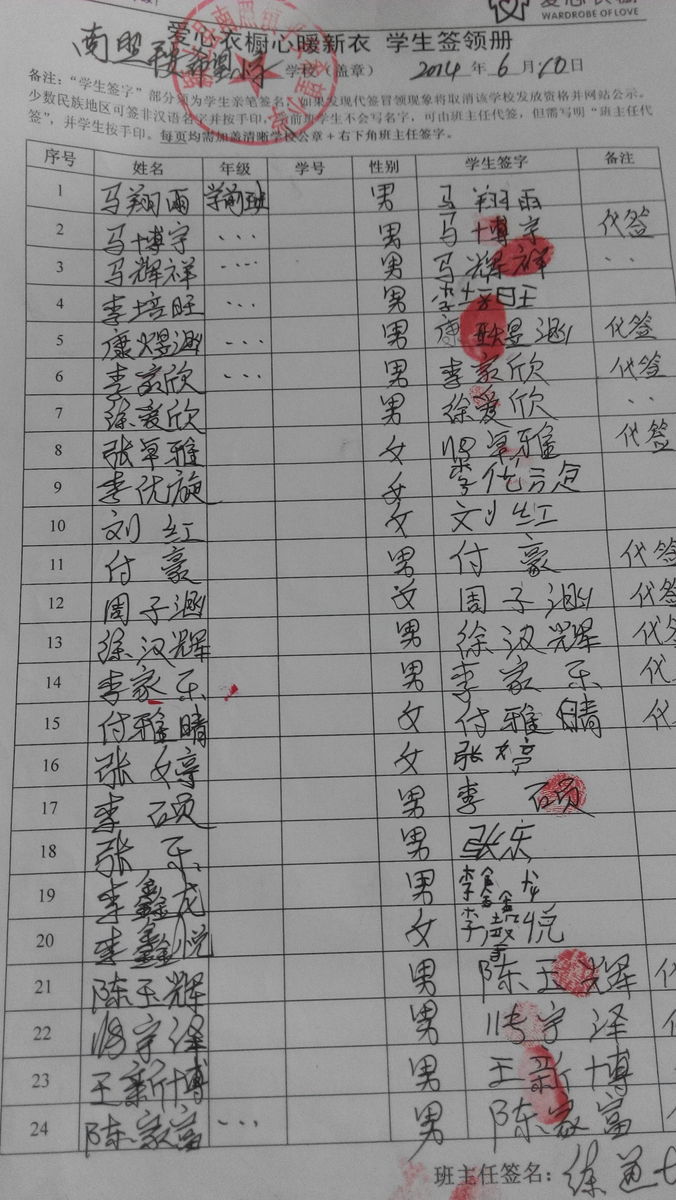 爱心衣橱
WARDROBE OF LOVE
爱心衣橱心暖新衣 学生签领册
学校（盖章） 2014 年 6 月 10 日
备注：“学生签字”部分须为学生亲笔签名，如果发现代签冒领现象将取消该学校发放资格并网站公示。
少数民族地区可签非汉语名字并按手印。学前班学生不会写名字，可由班主任代签，但需写明“班主任代
签”，并学生按手印。每页均需加盖清晰学校公章＋右下角班主任签字。
序号 姓名 年级 学号 性别 学生签字 备注
1 马翔雨 学前班 男 马翔雨
2 马博宇 ... 男 马博宇 代签
3 马辉祥 ... 男 马辉祥 ..
4 李培旺 ... 男 李培旺
5 康煜 ... 男 康煜 代签
6 李家欣 ... 男 李家欣 代签
7 徐爱欣 男 徐爱欣 ..
8 张卓雅 女 张卓雅 代签
9 李优旋 女 李优
10 刘红 女 刘红
11 付豪 男 付豪 代签
12 周子 女 周子 代签
13 徐汉辉 男 徐汉辉 代签
14 李家乐 男 李家乐 代
15 付雅晴 女 付雅晴 代
16 张婷 女 张婷
17 李硕 男 李硕
18 张乐 男 张庆
19 李鑫龙 男 李鑫龙
20 李鑫悦 女 李鑫悦
21 陈玉辉 男 陈玉辉 代
22 张宇泽 男 张宇泽
23 王新博 男 王新博
24 陈家富 ... 男 陈家富
班主任签名：徐